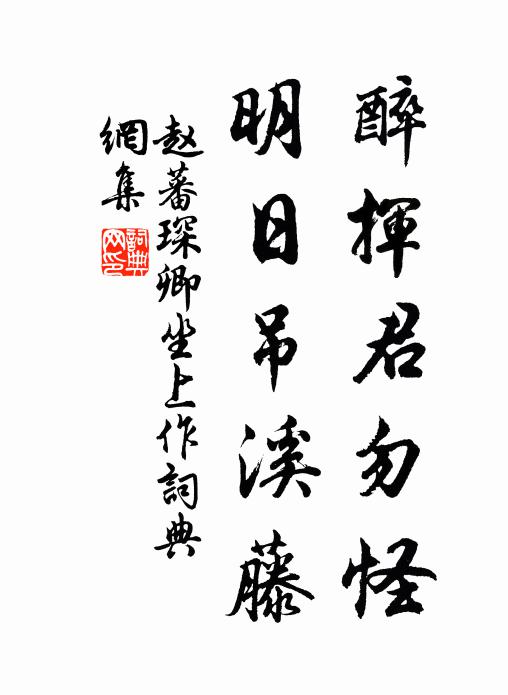 醉揮君勿怪
明日吊溪藤
赵蕃琛卿坐上作詞典
網集
詞典
网印